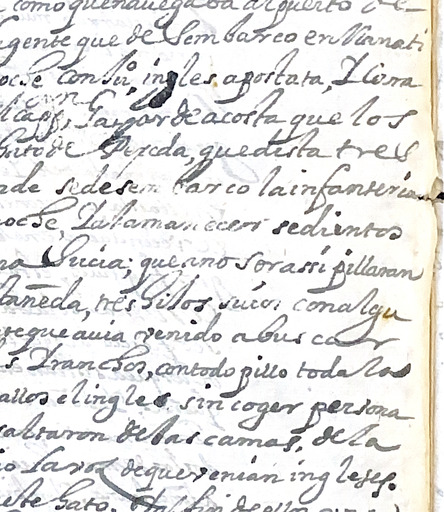 como quenauegaba al puerto de
gente que de sembarco en Manati
oche con su, ingles apostata, Y lora
Capn, Gaspar de acosta que los
hato de Pereda, que dista tres
ade se desembarco la infanteria
noche, Y al amanecer sedientos
na Lucia; que a no ser assi pillaran
tañeda, tres hilos suios con algu
te que auia venido a bus car
s Y ranchos, con todo pillo toda la
allos el ingles, sin coger persona
saltaron de las camas, de la
io la voz de que venian ingleses.
este hato.